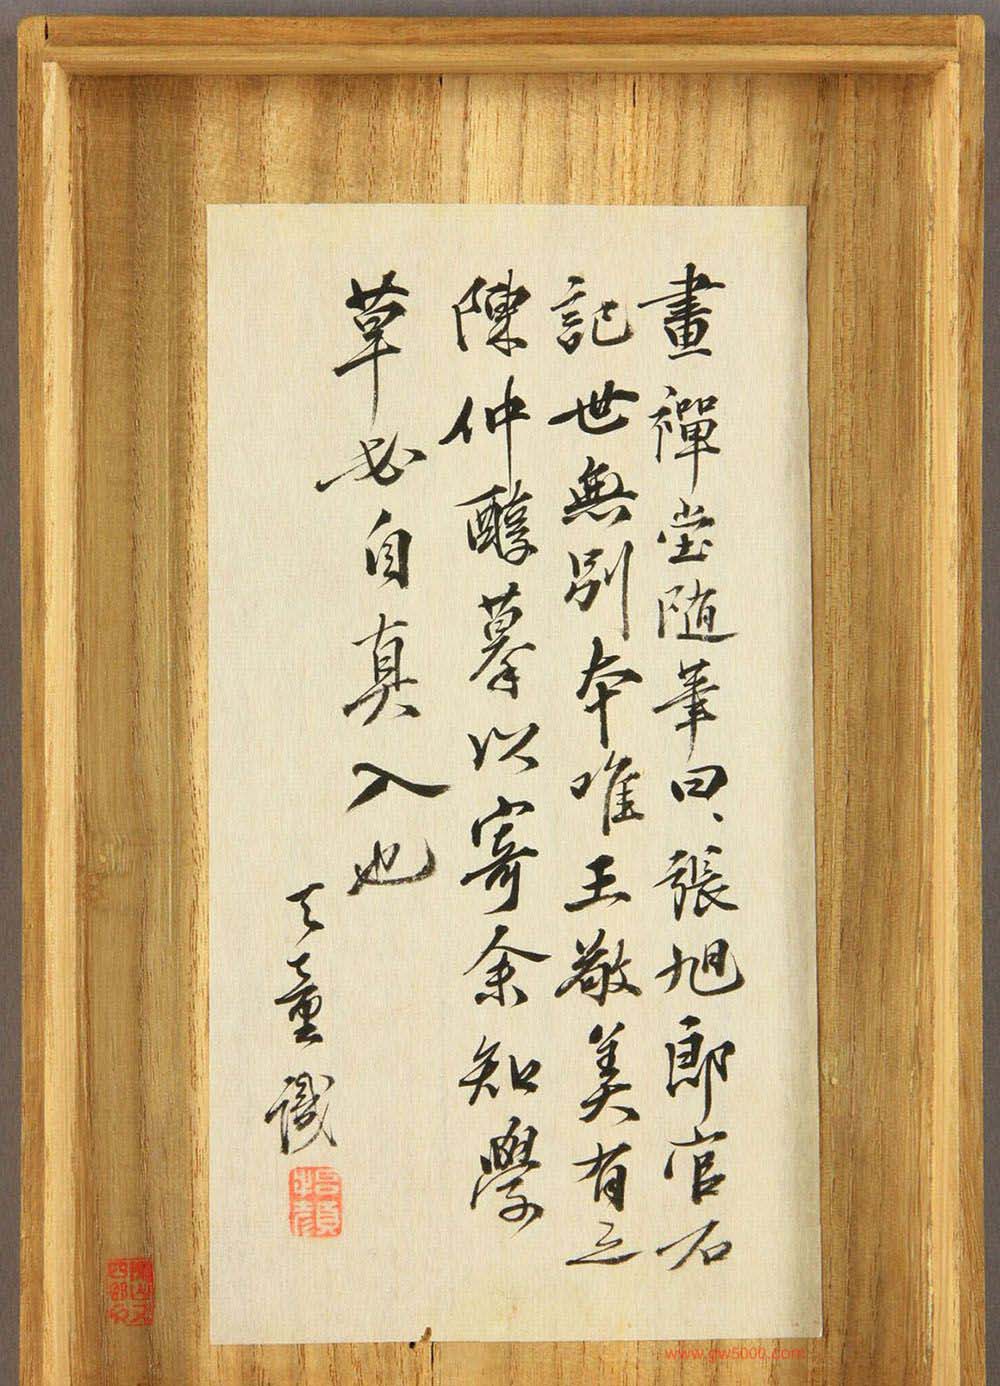 畫禪堂隨筆曰、張旭郎官石
記世無別本唯王敬美有之
陳仲醇摹以寄余知學
草必自真入也
天童識
www.gw5000.com